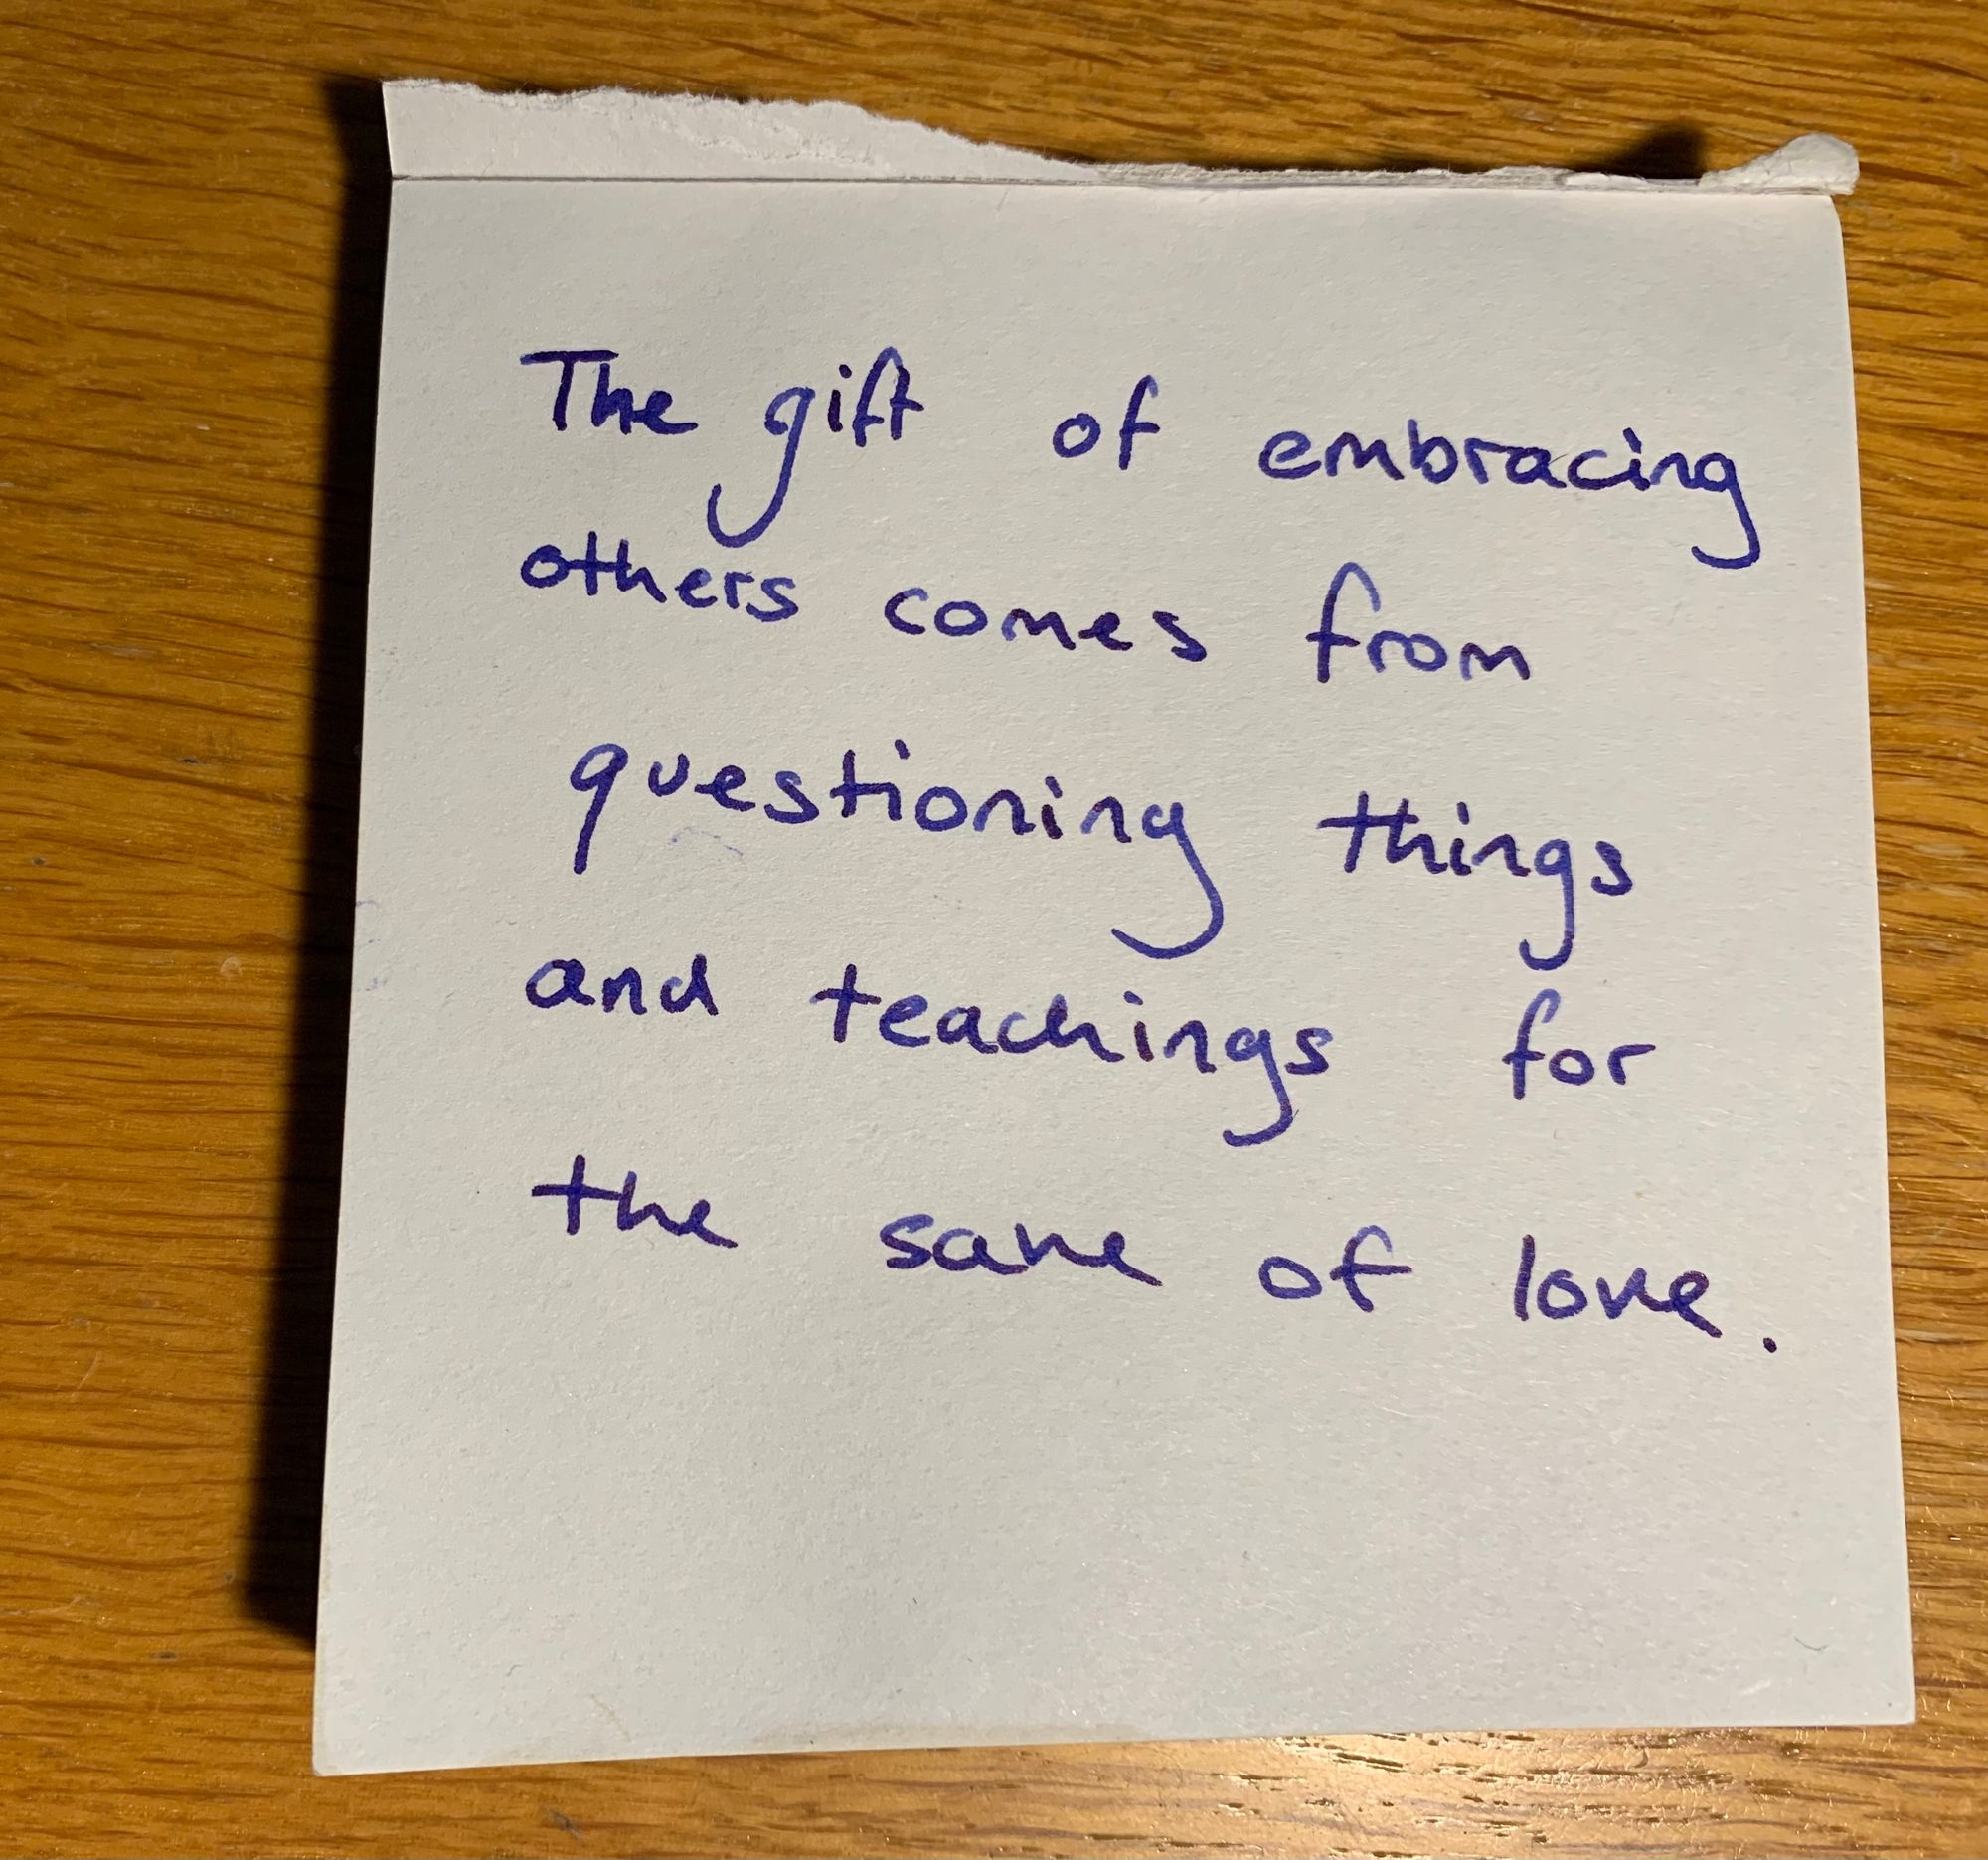 The gift of embracing
others comes from
questioning things
and teachings for
the sake of love.